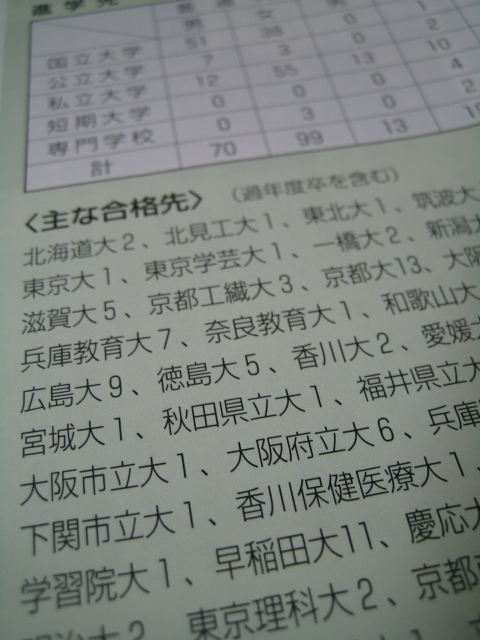 進学先 普通
男 女 男
国立大学 51 38 0 1
公立大学 7 3 0 2
私立大学 12 55 13 10
短期大学 0 0 0 4
専門学校 0 3 0 2
計 70 99 13
〈主な合格先〉 (過年度卒を含む)
北海道大2、北見工大1、東北大1、筑波大
東京大1、東京学芸大1、一橋大2、新潟大
滋賀大5、京都工繊大3、京都大13、大阪
兵庫教育大7、奈良教育大1、和歌山大
広島大9、徳島大5、香川大2、愛媛大
宮城大1、秋田県立大1、福井県立大
大阪市立大1、大阪府立大6、兵庫
下関市立大1、香川保健医療大1、
学習院大1、早稲田大11、慶応大
明治大2、東京理科大2、京都